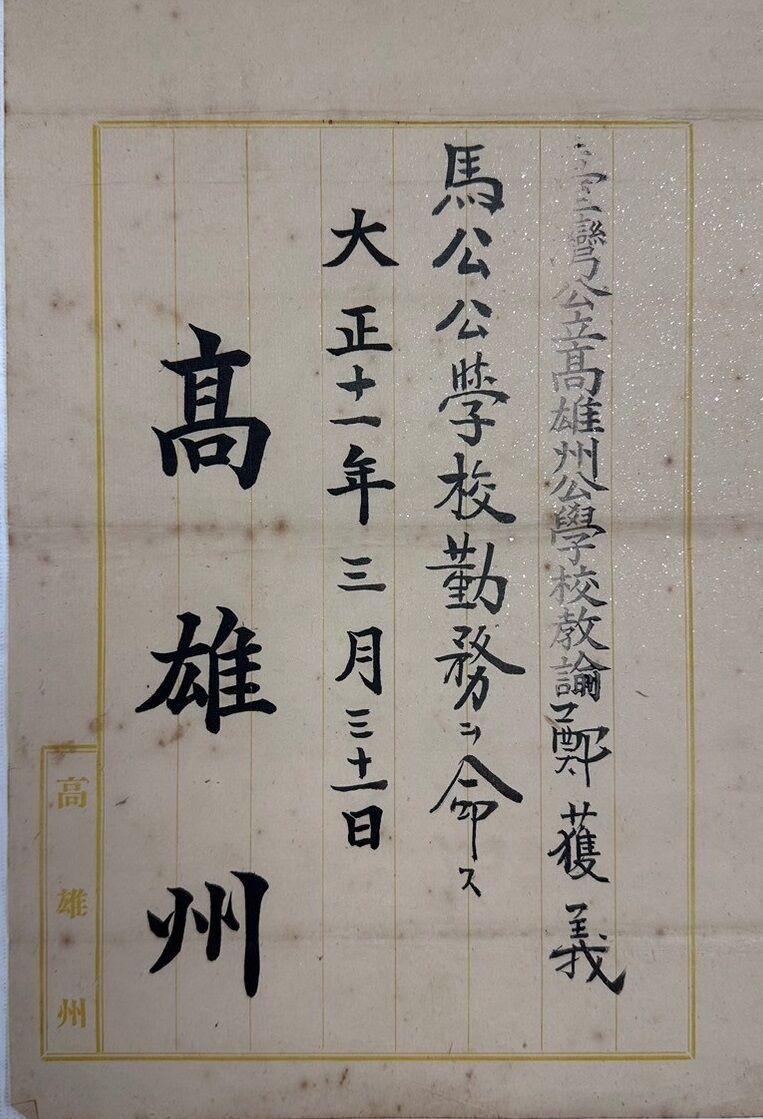 臺灣公立髙雄州公學校教諭鄭獲義
馬公公學校勤務ヲ命ス
大正十一年三月三十一日
髙雄州
高雄州